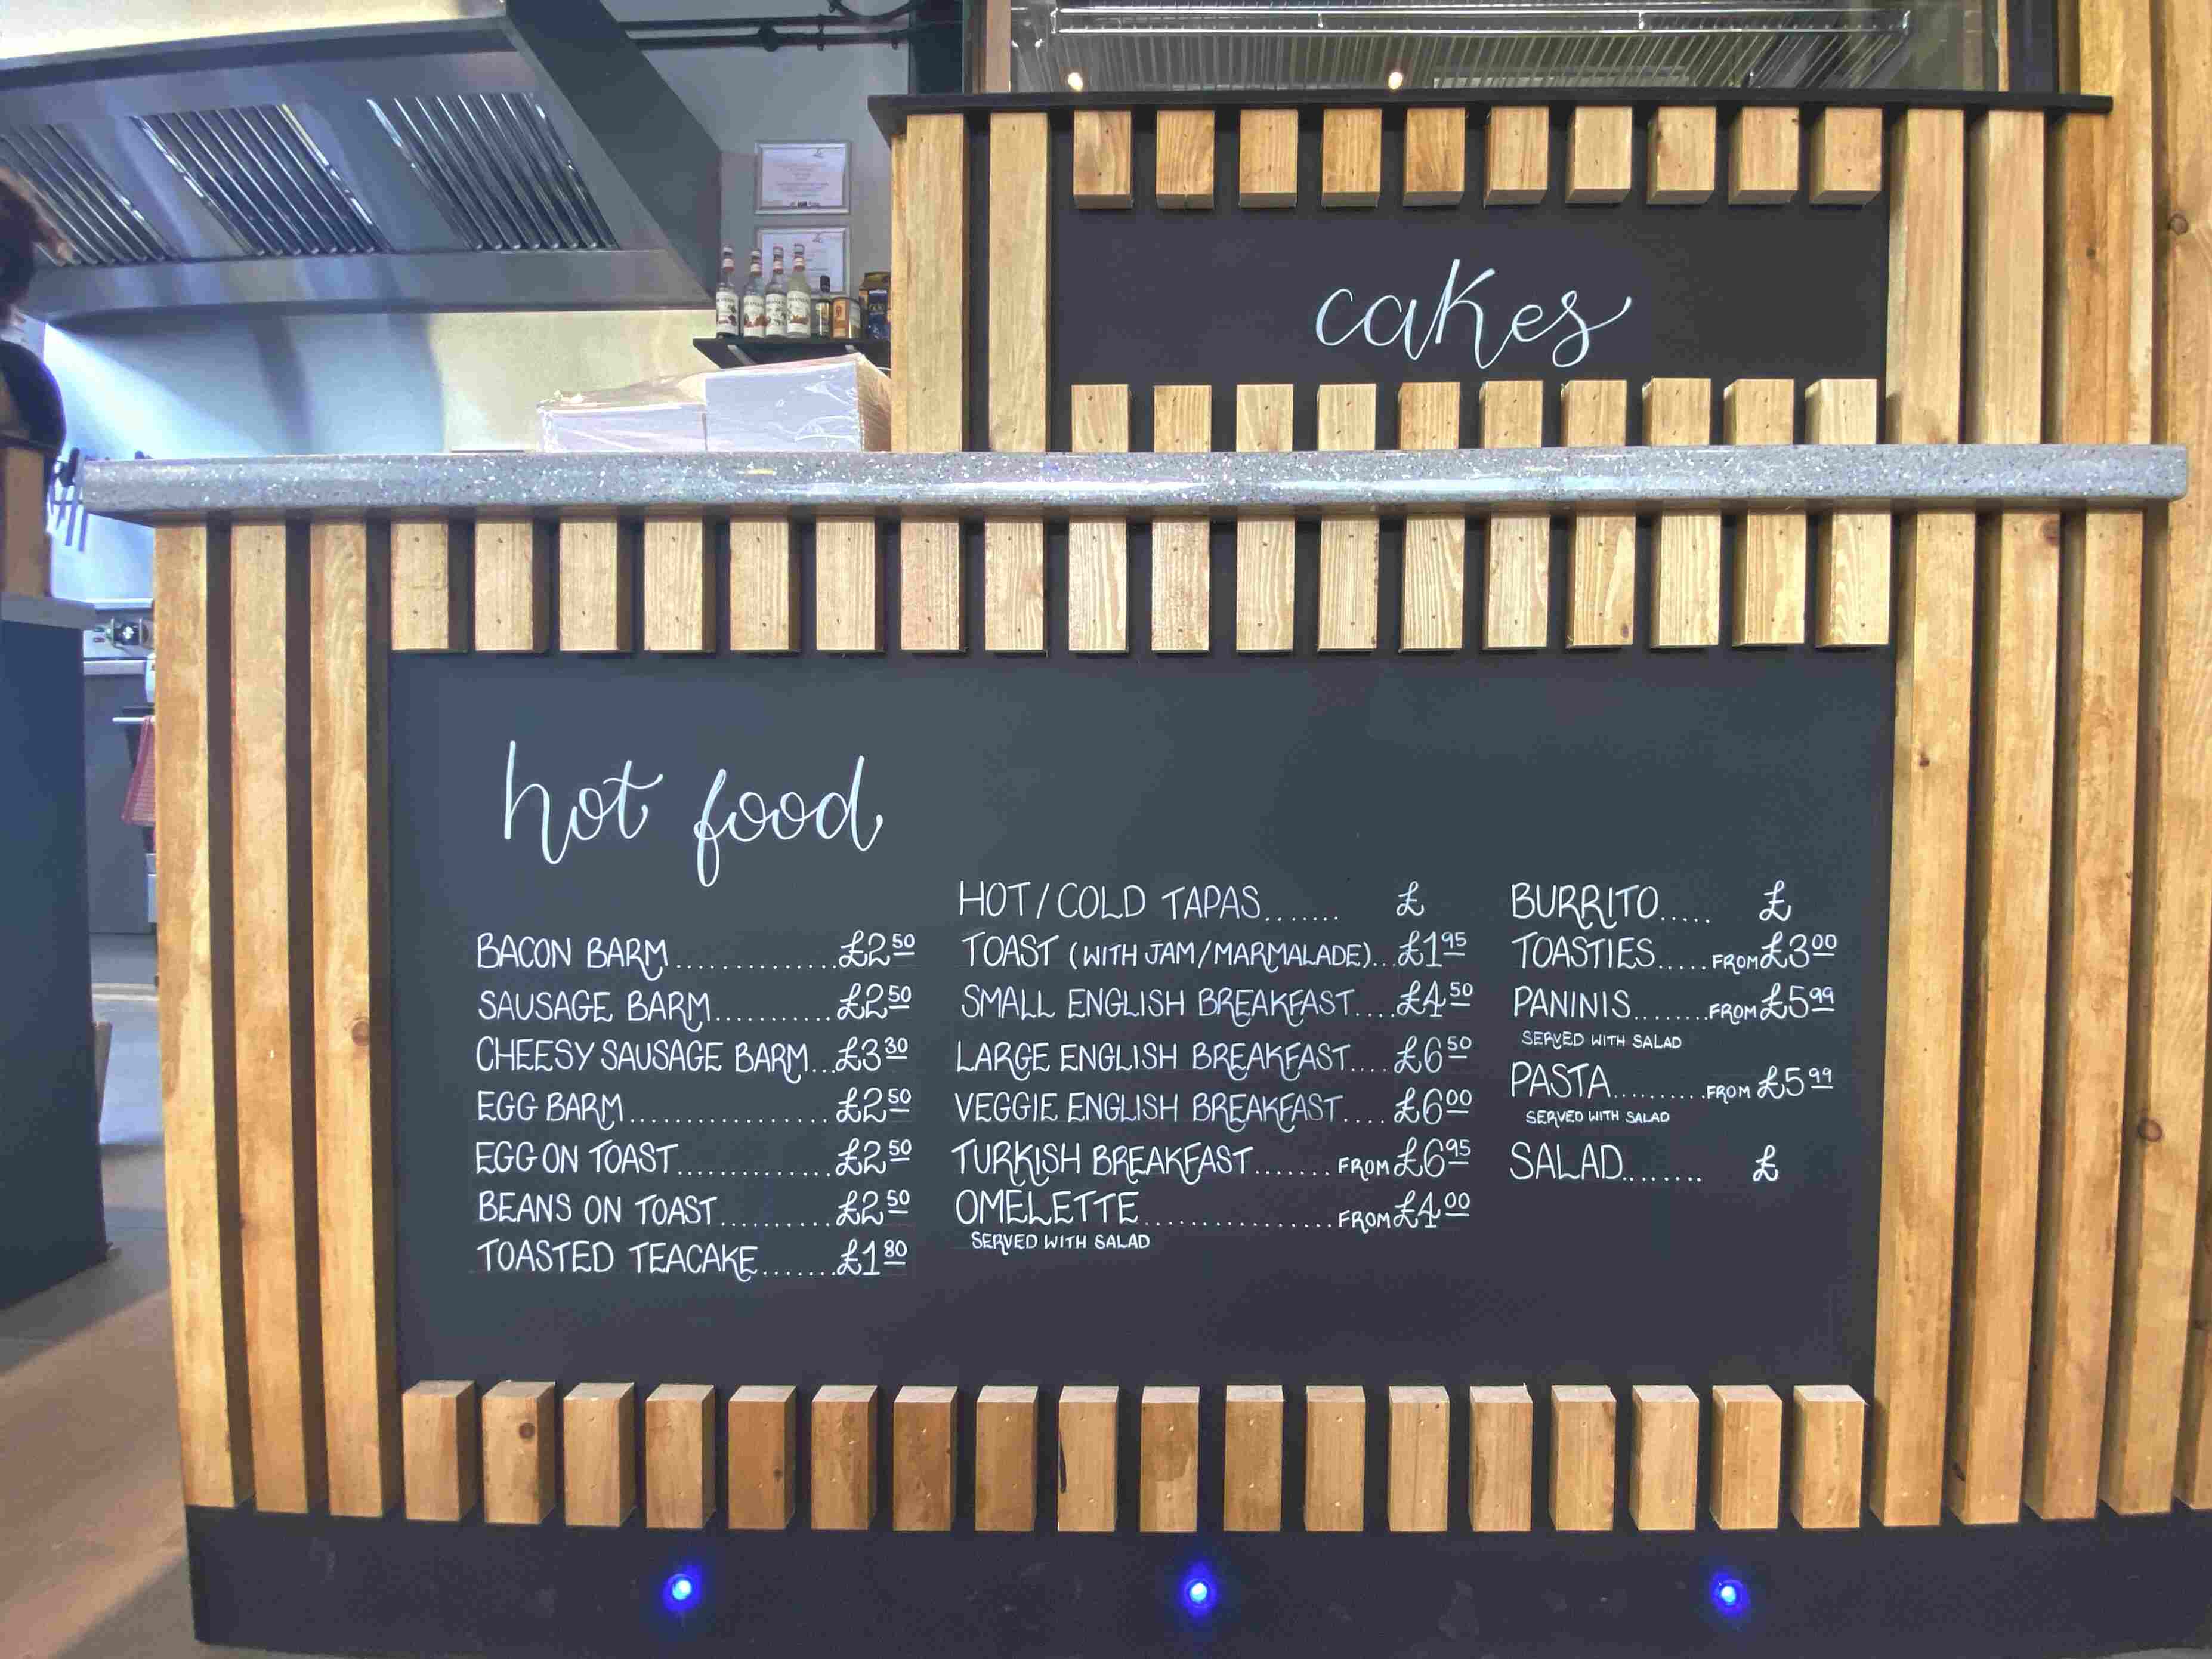 cakes
hot food
BACON BARM..............£2.50
SAUSAGE BARM...........£2.50
CHEESY SAUSAGE BARM...£3.30
EGG BARM.................£2.50
EGG ON TOAST.............£2.50
BEANS ON TOAST..........£2.50
TOASTED TEACAKE.......£1.80
HOT/COLD TAPAS....... £
TOAST (WITH JAM/MARMALADE)...£1.95
SMALL ENGLISH BREAKFAST....£4.50
LARGE ENGLISH BREAKFAST....£6.50
VEGGIE ENGLISH BREAKFAST....£6.00
TURKISH BREAKFAST.......FROM £6.95
OMELETTE................FROM £4.00
SERVED WITH SALAD
BURRITO..... £
TOASTIES.....FROM £3.00
PANINIS........FROM £5.99
SERVED WITH SALAD
PASTA..........FROM £5.99
SERVED WITH SALAD
SALAD........ £